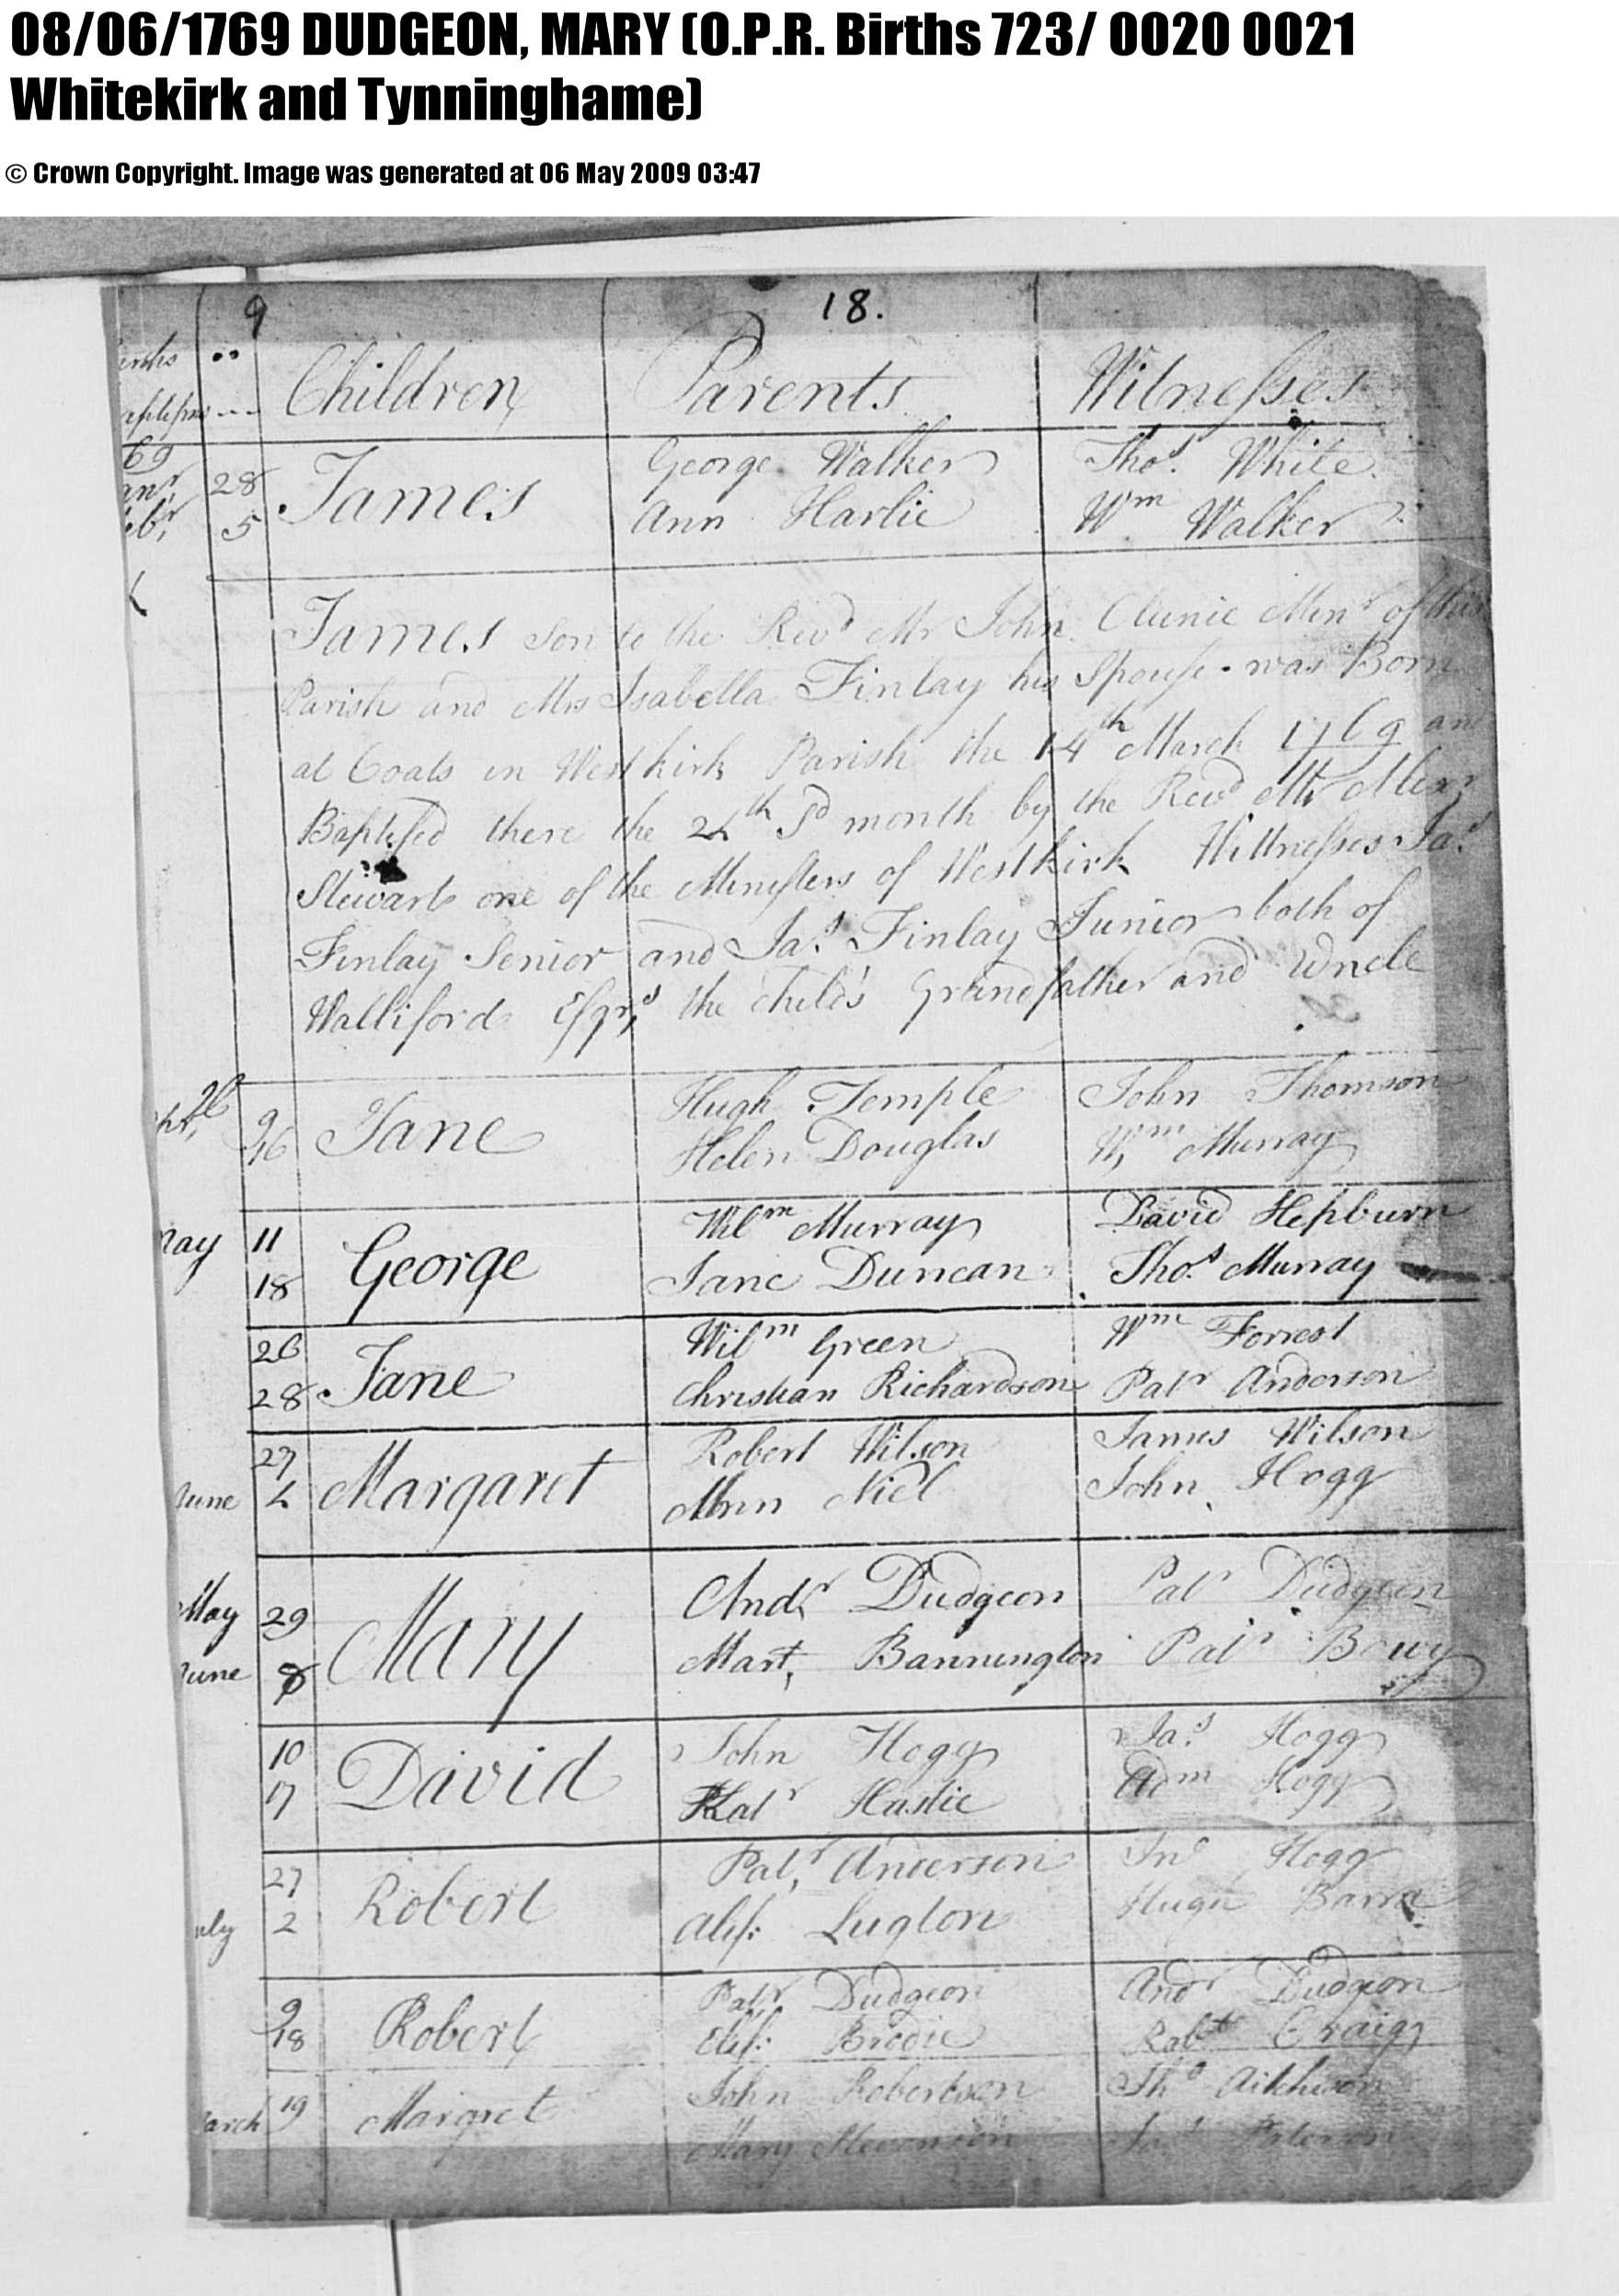 08/06/1769 DUDGEON, MARY (O.P.R. Births 723/ 0020 0021
Whitekirk and Tynninghame)
© Crown Copyright. Image was generated at 06 May 2009 03:47
9 18.
Children Parents Witnesses
69
28 James George Walker Thos. White
5 Ann Harlie Wm Walker
James Son to the Revd Mr John Clunie Minr of this
Parish and Mrs Isabella Finlay his Spouse was Born
at Coats in Westkirk Parish the 14th March 1769 and
Baptised there the 24th Sd month by the Revd Mr
Stewart one of the Ministers of Westkirk Wittnesses Jas
Finlay Senior and Jas. Finlay Junior both of
Walliford Esqrs the child's Grandfather and Uncle
9 Jane Hugh Temple John Thomson
16 Helen Douglas Wm Murray
May 11 George Wilm Murray David Hepburn
18 Jane Duncan Thos. Murray
26 Jane Wilm Green Wm Forrest
28 Christian Richardson Patr Anderson
27 Margaret Robert Wilson James Wilson
June 4 Ann Niel John Hogg
May 29 Mary Andr Dudgeon Patr Dudgeon
June 8 Mart, Bannington Patr
10 David John Hogg Jas. Hogg
17 Katr Hastie Adm Hogg
27 Robert Patr Anderson Jno Hogg
2 Alis: Lugton Hugh
9 Robert Patr Dudgeon Andr Dudgeon
18 Elis: Brodie Robt Craig
19 Margret John Robertson Tho Aitchison
Mary Stevenson Jas Paterson